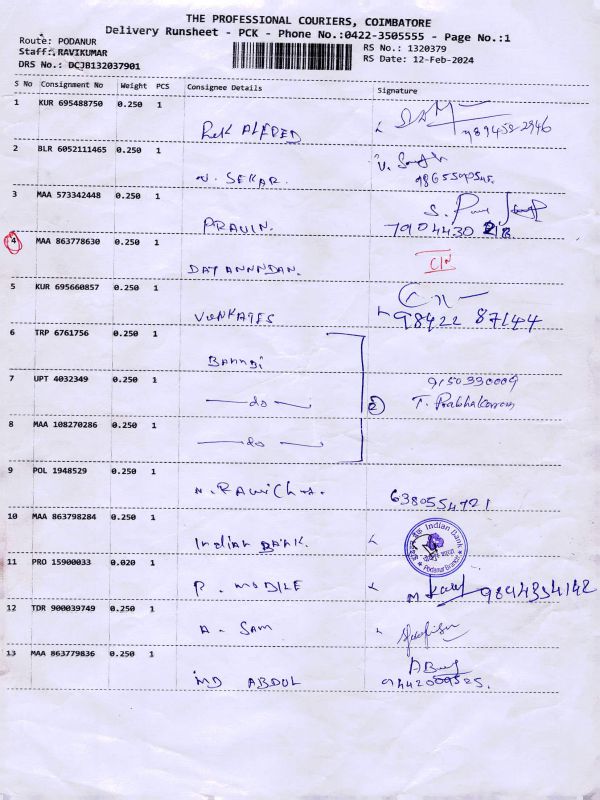 THE PROFESSIONAL COURIERS, COIMBATORE
Delivery Runsheet - PCK - Phone No.:0422-3505555 - Page No.:1
Route: PODANUR
RS No.: 1320379
Staff: RAVIKUMAR
RS Date: 12-Feb-2024
DRS No.: DCJB132037901
S No Consignment No Weight PCS Consignee Details Signature
1 KUR 695488750 0.250 1
ALFRED
2 BLR 6052111465 0.250 1
V. SEKAR.
3 MAA 573342448 0.250 1
PRAVIN.
4 MAA 863778630 0.250 1
5 KUR 695660857 0.250 1
VENKATES 98422 87144
6 TRP 6761756 0.250 1
7 UPT 4032349 0.250 1 9150330009
do 2 T. Prabhakaran
8 MAA 108270286 0.250 1
do
9 POL 1948529 0.250 1
6380554721
10 MAA 863798284 0.250 1
INDIAN BANK. Indian Bank
Podanur Branch
11 PRO 15900033 0.020 1
P. MOBILE 9894354142
12 TDR 900039749 0.250 1
A. SAM
13 MAA 863779836 0.250 1
MD ABDUL 9442009525.